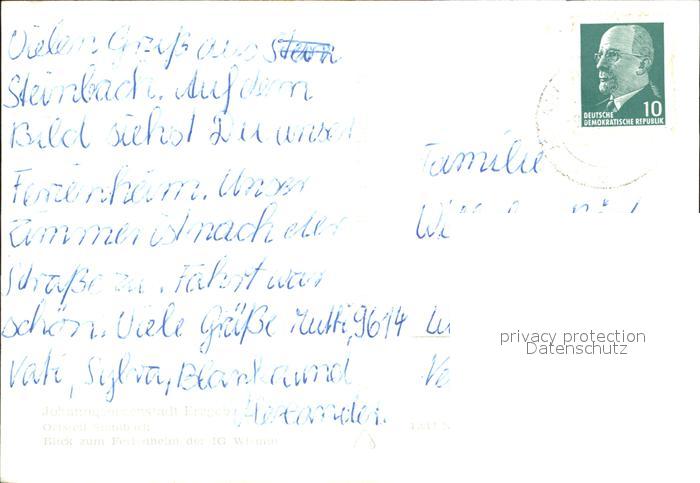 Vielen Gruß aus Stein
Steinbach. Auf dem
Bild siehst Du unser
Ferienheim. Unser
Zimmer ist nach der
Straße zu. Fahrt war
schön. Viele Grüße Mutti,
Vati, Sylva, Blanka und
Alexander.
Johanngeorgenstadt Erzgeb
Ortsteil Steinbach
Blick zum Ferienheim der IG Wismut
DEUTSCHE
DEMOKRATISCHE REPUBLIK
10
Familie
9614
privacy protection
Datenschutz